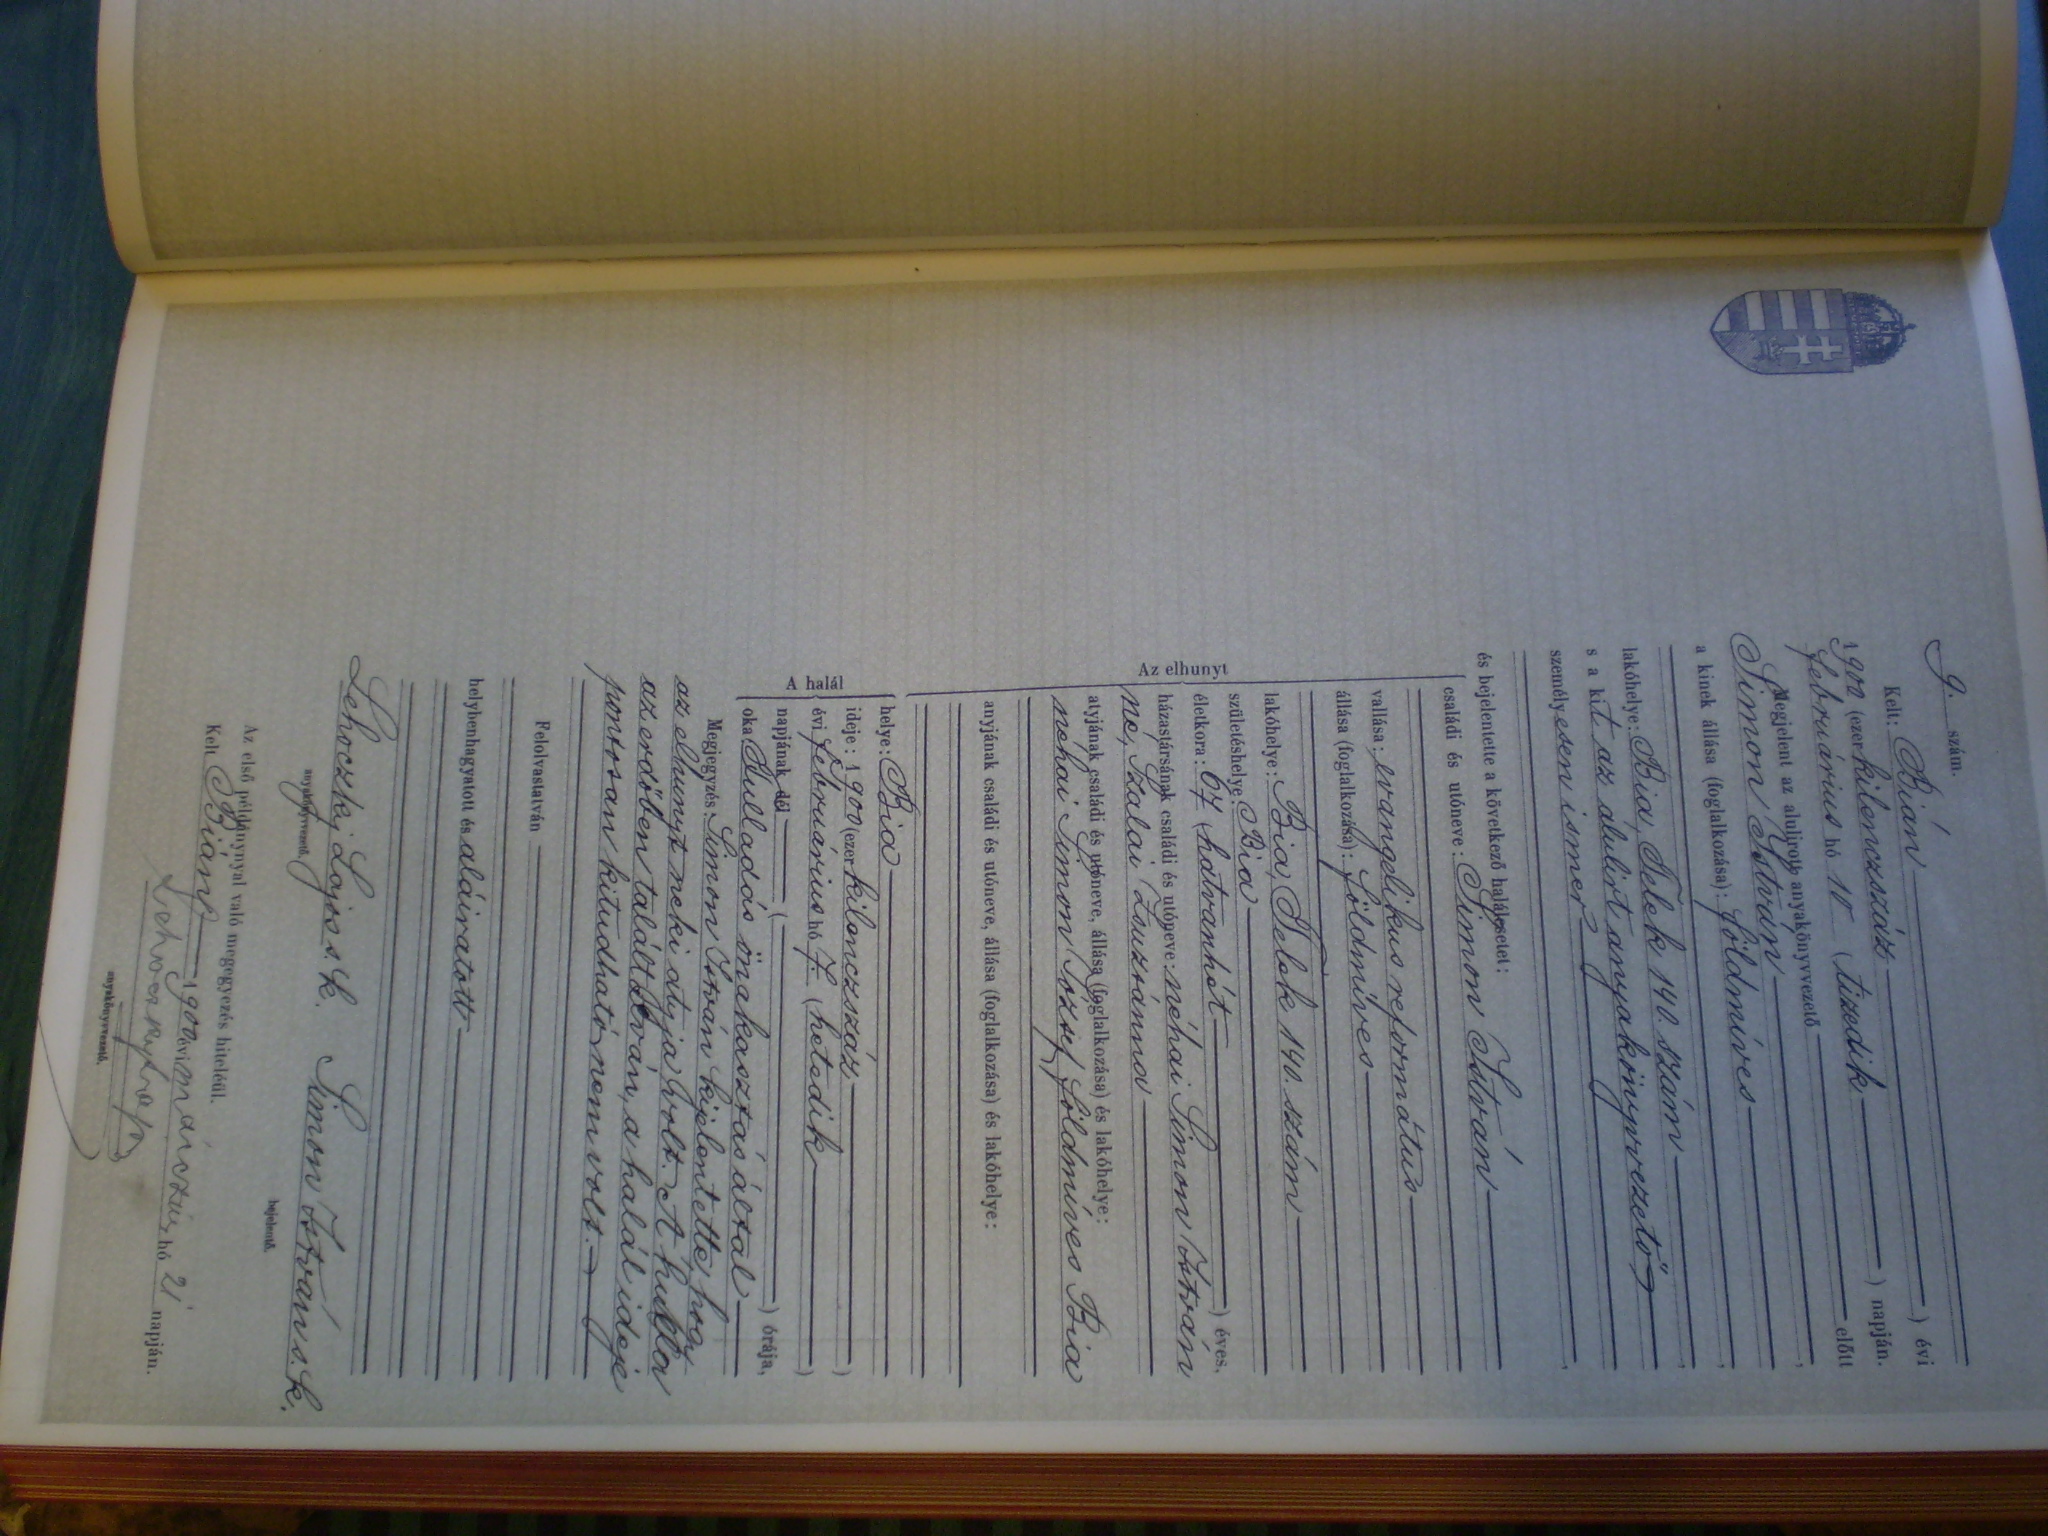 9. szám.
Kelt: Bián ) évi
1900 (ezer kilenczszáz ) napján.
februárius hó 10 (tizedik
Megjelent az alulirott anyakönyvvezető előtt
Simon István,
a kinek állása (foglalkozása): földmíves,
lakóhelye: Bia, Telek 140. szám,
s a kit az alulirt anyakönyvvezető
személyesen ismer,
és bejelentette a következő halálesetet:
Az elhunyt
családi és utóneve: Simon István
vallása: evangelikus református
állása (foglalkozása): földmíves
lakóhelye: Bia, Telek 140. szám
születéshelye: Bia
életkora: 67 (hatvanhét ) éves,
házastársának családi és utóneve: néhai Simon István
né, Szalai Zsuzsánna
atyjának családi és utóneve, állása (foglalkozása) és lakóhelye:
néhai Simon József, földmíves Bia
anyjának családi és utóneve, állása (foglalkozása) és lakóhelye:
A halál
helye: Bia
ideje: 1900 (ezer kilenczszáz )
évi februárius hó 7. (hetedik )
napjának dél ( ) órája,
oka: Fulladás önakasztás által
Megjegyzés: Simon István kijelentette, hogy
az elhunyt neki atyja volt. A hulla
az erdőben találtatván, a halál ideje
pontosan kitudható nem volt.
Felolvastatván
helybenhagyatott és aláíratott
Lehoczky Lajos s.k. Simon István s.k.
anyakönyvvezető. bejelentő.
Az első példánynyal való megegyezés hiteléül.
Kelt Bián, 1900 évi márczius hó 21 napján.
anyakönyvvezető.